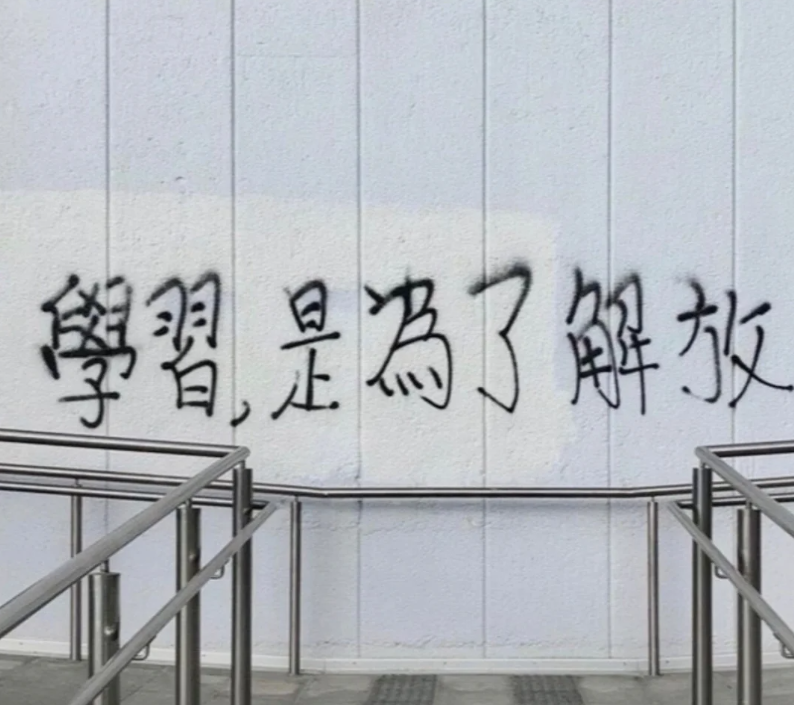 學習,是為了解放